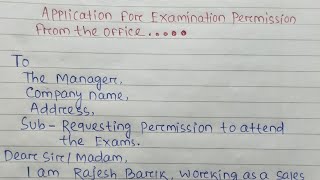 Application for Examination Permission
from the office.....
To
The Manager,
Company name,
Address,
Sub- Requesting permission to attend
the Exams.
Dear Sir/Madam,
I am Rajesh Barik, working as a sales